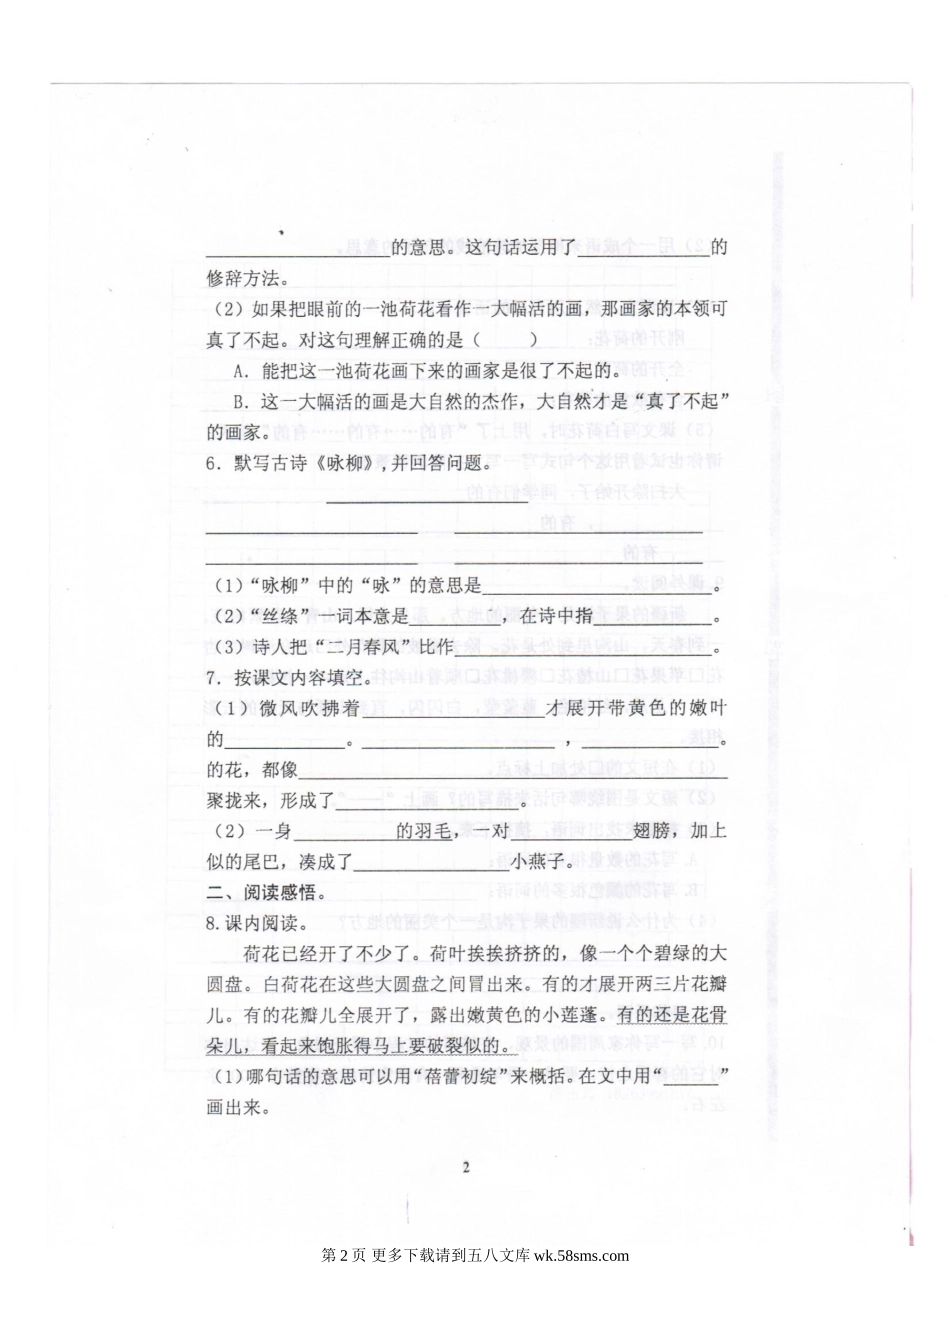 ______的意思。这句话运用了______的
修辞方法。
(2)如果把眼前的一池荷花看作一大幅活的画，那画家的本领可
真了不起。对这句理解正确的是（　　）
A．能把这一池荷花画下来的画家是很了不起的。
B．这一大幅活的画是大自然的杰作，大自然才是“真了不起”
的画家。
6．默写古诗《咏柳》,并回答问题。
(1)“咏柳”中的“咏”的意思是______。
(2)“丝绦”一词本意是______，在诗中指______。
(3)诗人把“二月春风”比作______。
7．按课文内容填空。
(1) 微风吹拂着______才展开带黄色的嫩叶
的______。______，______。
的花，都像______
聚拢来，形成了______。
(2) 一身______的羽毛，一对______翅膀，加上
似的尾巴，凑成了______小燕子。
二、阅读感悟。
8.课内阅读。
荷花已经开了不少了。荷叶挨挨挤挤的，像一个个碧绿的大
圆盘。白荷花在这些大圆盘之间冒出来。有的才展开两三片花瓣
儿。有的花瓣儿全展开了，露出嫩黄色的小莲蓬。有的还是花骨
朵儿，看起来饱胀得马上要破裂似的。
(1)哪句话的意思可以用“蓓蕾初绽”来概括。在文中用“______”
画出来。
2
第 2 页 更多下载请到五八文库 wk.58sms.com